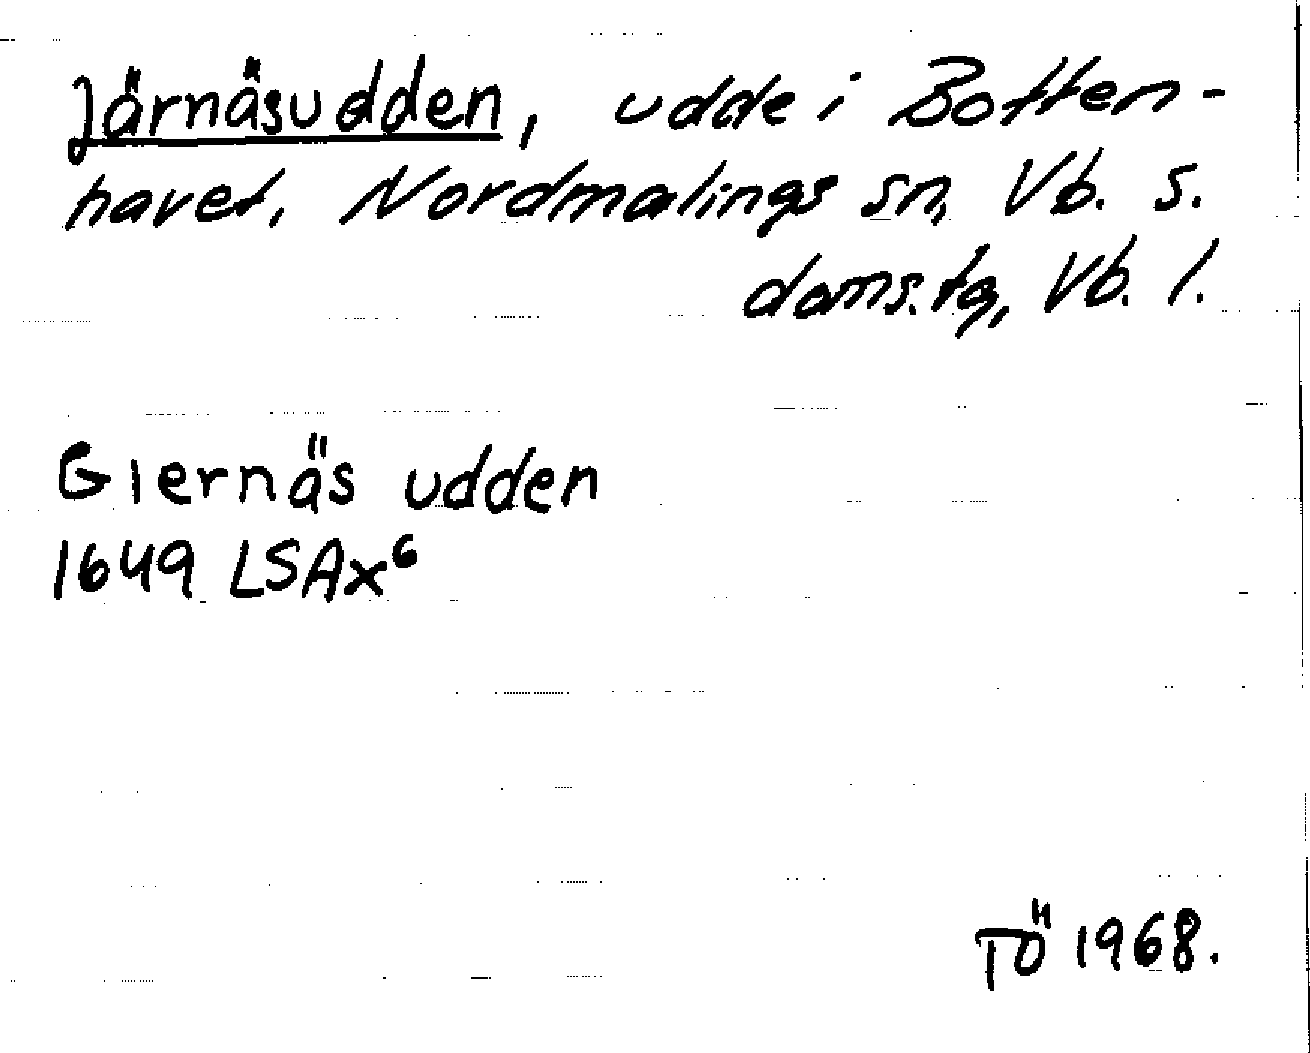 Järnäsudden, udde i Botten-
havet, Nordmalings sn, Vb. s.
doms.tg, Vb. l.
Giernäs udden
1649 LSAx⁶
TÖ 1968.